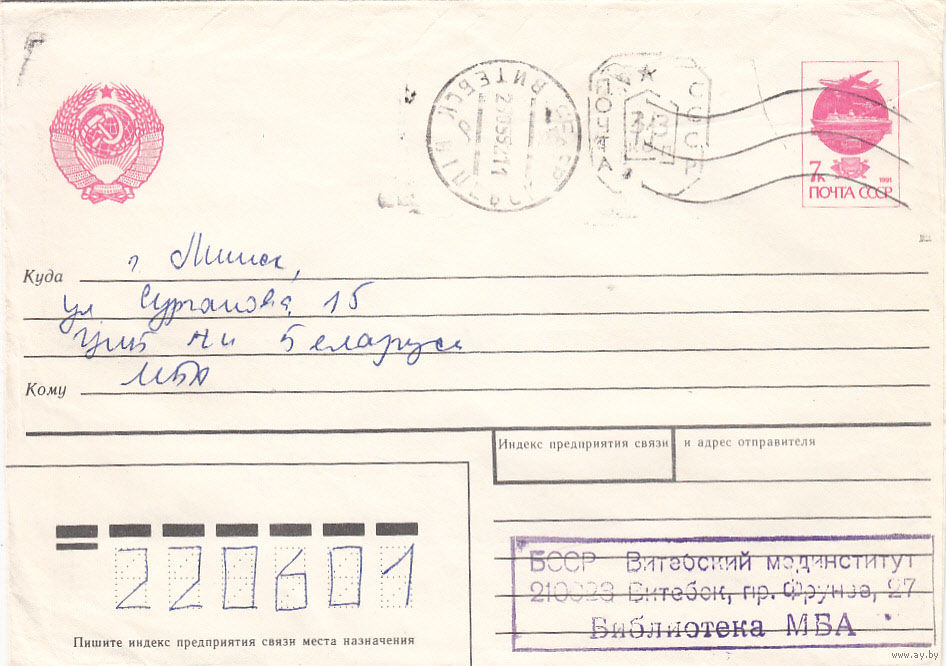 ВИТЕБСК
ПОЧТА
СССР
7к
1991
ПОЧТА СССР
Куда г Минск,
ул Сурганова, 15
ЦНБ АН Беларуси
Кому МБА
Индекс предприятия связи и адрес отправителя
220601
Пишите индекс предприятия связи места назначения
БССР Витебский мединститут
210023 Витебск, пр. Фрунзе, 27
Библиотека МБА
www.ay.by